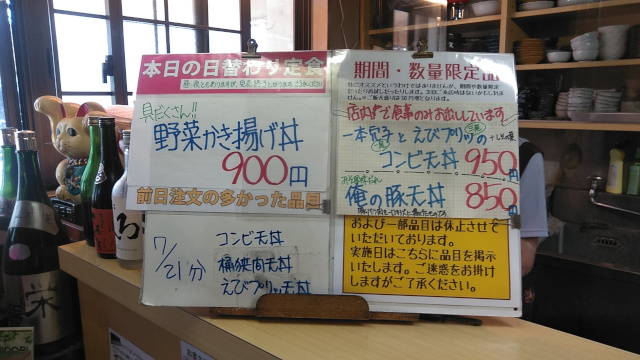 本日の日替わり定食
具だくさん!!
野菜かき揚げ丼
900円
前日注文の多かった品目
7/21分
コンビ天丼
桶狭間天丼
えびプリッ天丼
期間・数量限定品
店内で食事のみお出ししています
一本穴子とえびプリッの
コンビ天丼 950円
俺の豚天丼 850円
および一部品目は休止させて
いただいております。
実施日はこちらに品目を掲示
いたします。ご迷惑をお掛け
しますがご了承ください。
栄